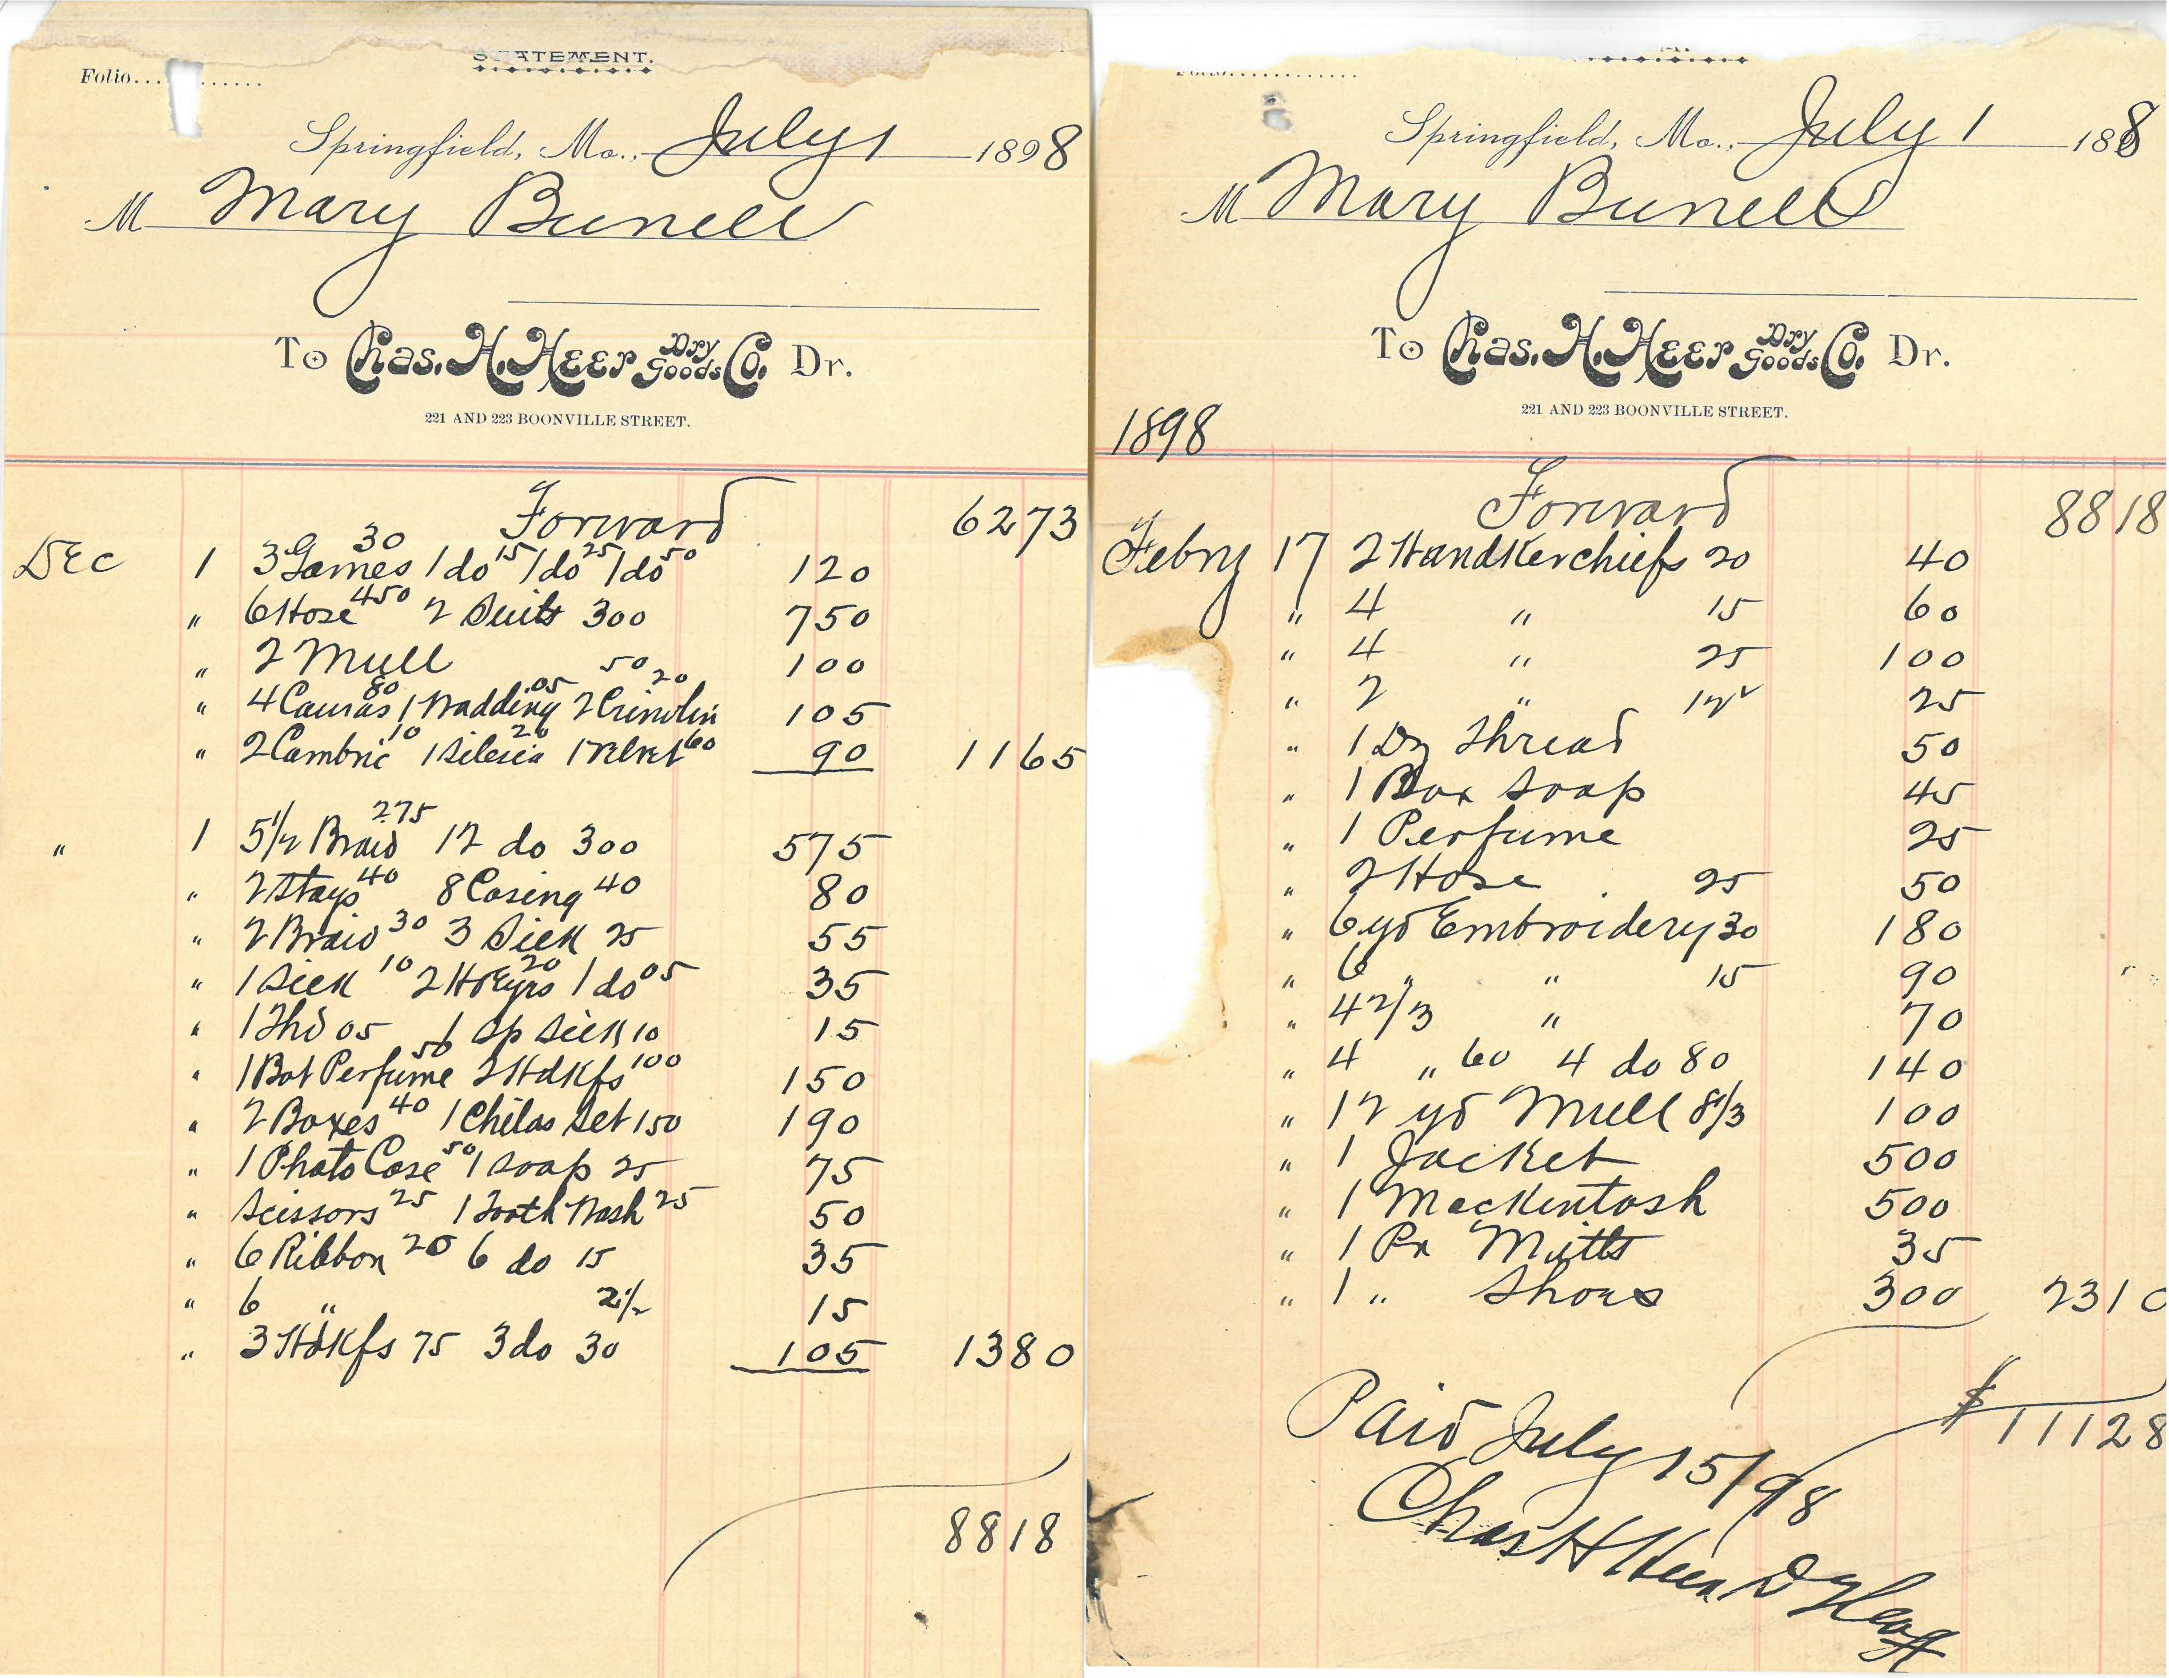 STATEMENT.
Folio
Springfield, Mo., July 1 1898
M Mary Bunell
To Chas. H. Heer Dry Goods Co. Dr.
221 AND 223 BOONVILLE STREET.
Forward 6273
Dec 1 3 Games 30 1 do 15 1 do 25 1 do 50 120
" 6 Hose 450 2 Suits 300 750
" 2 Mull 50 100
" 4 Canvas 80 1 Wadding .05 2 Crinolin 20 105
" 2 Cambric 10 1 Silesia 20 1 Velvet 60 90 1165
" 1 5 1/2 Braid 275 12 do 300 575
" 2 Stays 40 8 Casing 40 80
" 2 Braid 30 3 Silk 25 55
" 1 Silk 10 2 H & Eyes 20 1 do 05 35
" 1 Thd 05 1 Sp Silk 10 15
" 1 Bot Perfume 50 2 Hdkfs 100 150
" 2 Boxes 40 1 Childs Set 150 190
" 1 Photo Case 50 1 Soap 25 75
" Scissors 25 1 Tooth Wash 25 50
" 6 Ribbon 20 6 do 15 35
" 6 " 2 1/2 15
" 3 Hdkfs 75 3 do 30 105 1380
8818
Springfield, Mo., July 1 188
M Mary Bunell
To Chas. H. Heer Dry Goods Co. Dr.
221 AND 223 BOONVILLE STREET.
1898
Forward 8818
Febry 17 2 Handkerchiefs 20 40
" 4 " 15 60
" 4 " 25 100
" 2 " 12 1/2 25
" 1 Dz Thread 50
" 1 Box Soap 45
" 1 Perfume 25
" 2 Hose 25 50
" 6 yd Embroidery 30 180
" 6 " " 15 90
" 4 2/3 " 70
" 4 " 60 4 do 80 140
" 12 yd Mull 8 1/3 100
" 1 Jacket 500
" 1 Mackintosh 500
" 1 Pr Mitts 35
" 1 " Shoes 300 2310
$ 11128
Paid July 15/98
Chas H Heer D G Co